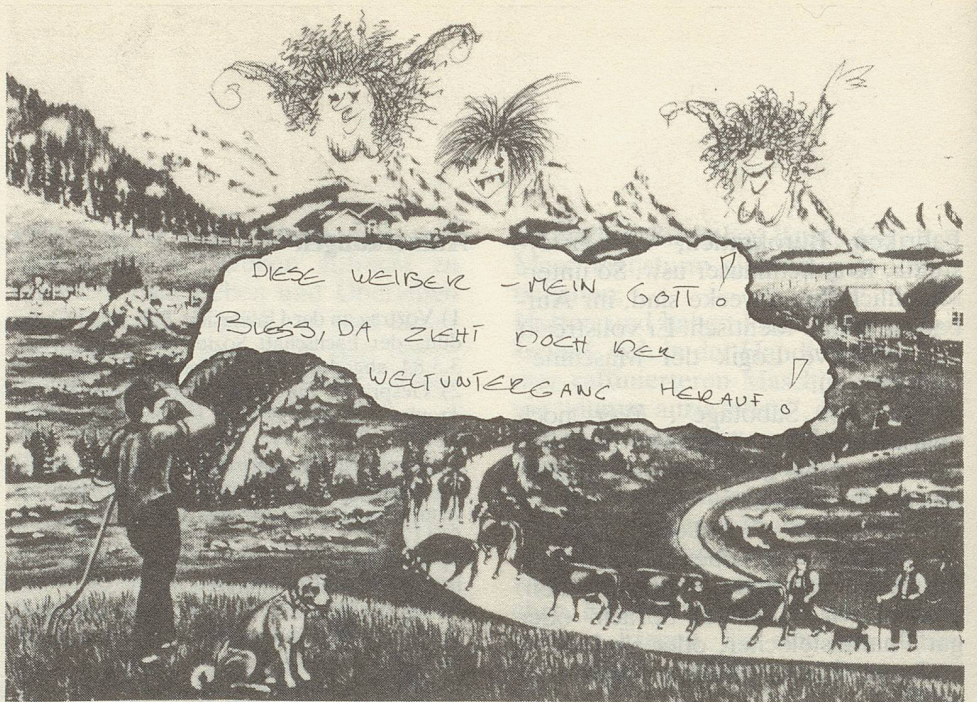 DIESE WEIBER – MEIN GOTT!
BLESS, DA ZIEHT DOCH DER
WELTUNTERGANG HERAUF!